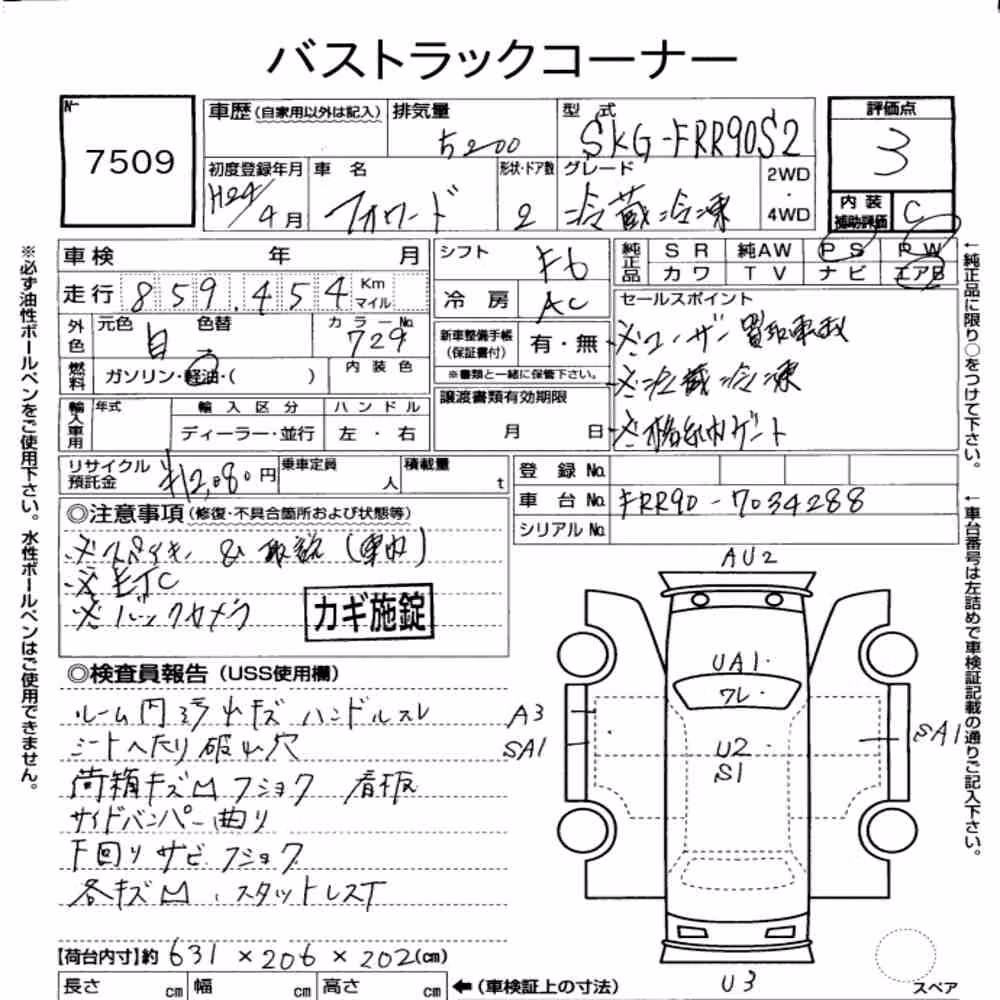 バストラックコーナー
N-
7509
車歴 (自家用以外は記入)
排気量
5200
型式
SKG-FRR90S2
評価点
3
初度登録年月
H24/4月
車名
フォワード
形状・ドア数
2
グレード
冷蔵冷凍
2WD
・
4WD
内装
補助評価
C
車検 年 月
シフト
F6
純正品
SR 純AW PS PW
カワ TV ナビ エアB
走行 859,454 Km
マイル
冷房
AC
セールスポイント
外色
元色 色替
白
カラーNo.
729
新車整備手帳
(保証書付)
有・無
※書類と一緒に保管下さい。
※ユーザー買取車両
※冷蔵冷凍
※格納ゲート
燃料
ガソリン・軽油・( )
内装色
輸入車用
年式
輸入区分
ディーラー・並行
ハンドル
左・右
譲渡書類有効期限
月 日
リサイクル
預託金
¥12,080円
乗車定員
人
積載量
t
登録No.
車台No.
FRR90-7034288
シリアルNo.
◎注意事項 (修復・不具合箇所および状態等)
※スペアキー & 取説 (車内)
※ETC
※バックカメラ
カギ施錠
◎検査員報告 (USS使用欄)
ルーム内汚レキズ ハンドルスレ
シートヘたり破レ穴
荷箱キズ凹フショク 看板
サイドバンパー曲り
下回りサビフショク
各キズ凹、スタットレスT
【荷台内寸】約 631 × 206 × 202(cm)
長さ cm 幅 cm 高さ cm
←(車検証上の寸法)
AU2
UA1
ワレ
A3
SA1
U2
S1
SA1
U3
スペア
※必ず油性ボールペンをご使用下さい。水性ボールペンはご使用できません。
←純正品に限り○をつけて下さい。
←車台番号は左詰めで車検証記載の通りご記入下さい。